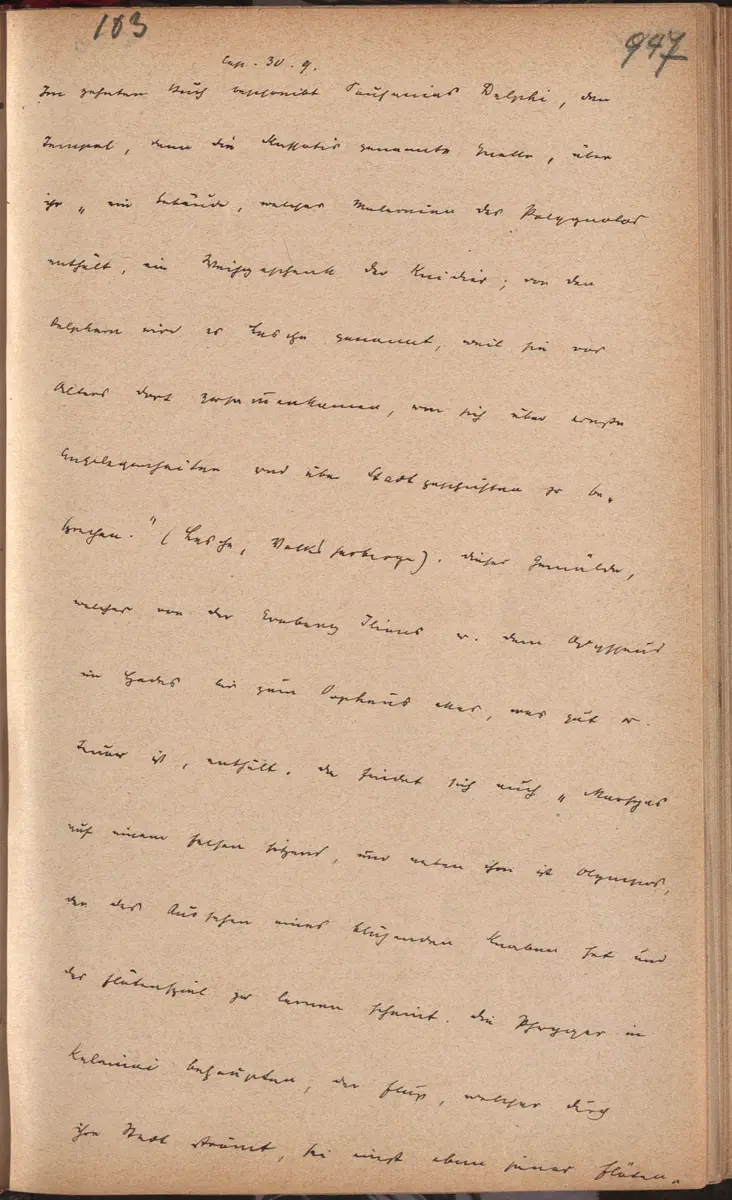 103
947
Cap. 30. 9.
Im zehnten Buch beschreibt Pausanias Delphi, den
Tempel, dann die Kassotis genannte Quelle, über
ihr „ein Gebäude, welches Malereien des Polygnotos
enthält, ein Weihgeschenk der Knidier; von den
Delphern wird es Lesche genannt, weil sie vor
Alters dort zusammenkamen, um sich über ernste
Angelegenheiten und über Stadtgeschichten zu be„
sprechen.“ (Lesche, Volksherberge). Dieses Gemälde,
welches von der Eroberung Ilions u. dem Odysseus
im Hades bis zum Orpheus alles, was gut u.
teuer ist, enthält. Da findet sich auch „Marsyas
auf einem Felsen sitzend, und neben ihm ist Olympos,
der das Aussehen eines blühenden Knaben hat und
das Flötenspiel zu lernen scheint. Die Phryger in
Kelainai behaupten, der Fluß, welcher durch
ihre Stadt strömt, sei einst eben jener Flöten„